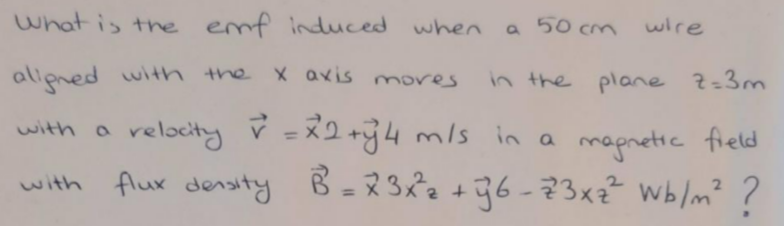 What is the emf induced when a 50 cm wire
aligned with the x axis moves in the plane z=3m
with a velocity v⃗ = x⃗2+y⃗4 m/s in a magnetic field
with flux density B⃗ = x⃗3x²z + y⃗6 - z⃗3xz² Wb/m² ?